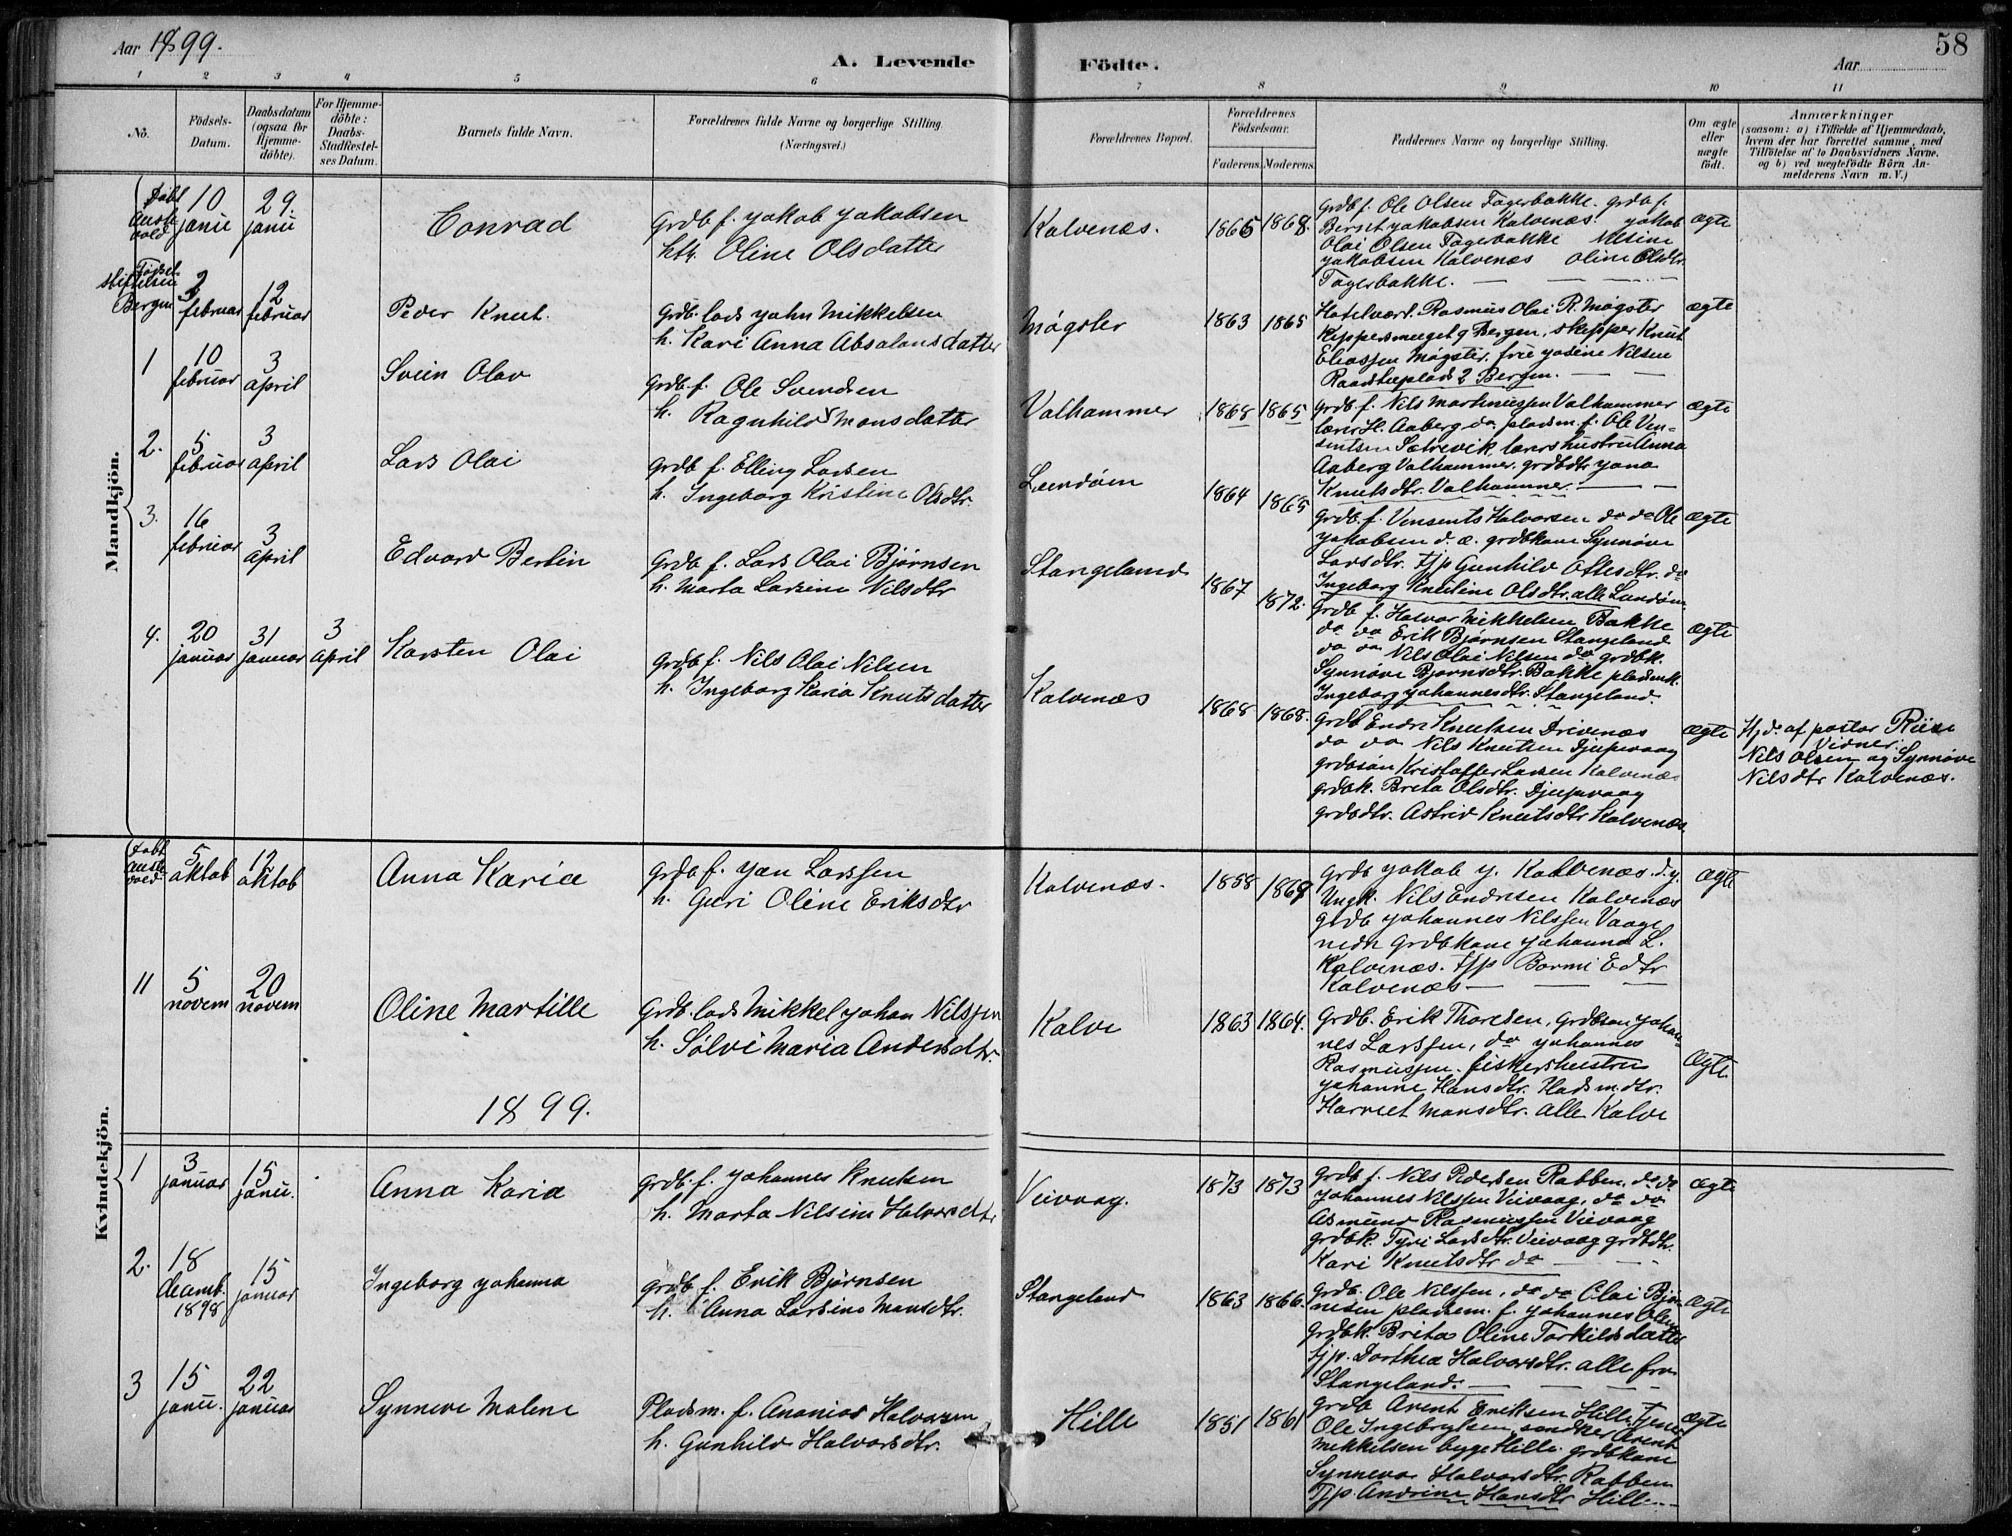 Aar 1899.
A. Levende Födte.
Aar
58
1 2 3 4 5 6 7 8 9 10 11
No.
Födsels-Datum.
Daabsdatum (ogsaa for Hjemme-döbte).
For Hjemme-döbte: Daabs-Stadfæstel-ses Datum.
Barnets fulde Navn.
Forældrenes fulde Navne og borgerlige Stilling.
(Næringsvei.)
Forældrenes Bopæl.
Forældrenes Födselsaar.
Faderens. Moderens.
Faddernes Navne og borgerlige Stilling.
Om ægte eller uægte födt.
Anmærkninger
(saasom: a) i Tilfælde af Hjemmedaab,
hvem der har forrettet samme, med
Tilföielse af to Daabsvidners Navne.
og b) ved uægtefödte Börn An-
melderens Navn m. V.)
Mandkjön.
Döbt Auste vold
10 janu
29. janu
Conrad
Grdb f. Jakob Jakobsen
htr. Oline Olsdatter
Kalvenæs.
1865 1868.
Grdb f. Ole Olsen Fagerbakke. grdb f.
Berset Jakobsen Kalvenæs. Jakob
Olai Olsen Fagerbakke Nilsine
Jakobsen Kalvenæs Oline Olsdtr.
Fagerbakke.
ægte
Fødsel stiftelsen Bergen
februar
12 februar
Peder Knut.
Grdb. lods John Mikkelsen
h. Kari Anna Absalonsdatter
Møgster
1863 1865
Hotelvært. Rasmus Olai R. Møgster
Bergen, skipper Knut
Eliassen Møgster. frue Josine Nilsen
2 Bergen.
ægte
1
10 februar
3 april
Svein Olav
Grdb. f. Ole Svendsen
h. Ragnhild Monsdatter
Valhammer
1868 1865
Grdb f. Nils Martinussen Valhammer
lærer H. Aaberg do pladsm. f. Ole Vin-
sentsen Sætrevik, lærers hustru Anna
Aaberg Valhammer. grdbdtr Jana
Knutsdtr. Valhammer.
ægte
2.
5 februar
3 april
Lars Olai
Grdb f. Elling Larsen
h. Ingeborg Kristine Olsdtr.
Lundøen
1864 1865
Grdb. f. Vinsents Halvorsen do do Ole
Jakobsen d. æ. grdbkone Synnøve
Larsdtr. tjp Gunhild Ottesdtr. do
Ingeborg Knutine Olsdtr. alle Lundøen
ægte
3.
16 februar
3 april
Edvard Bertin
Grdb f. Lars Olai Bjørnsen
h. Marta Larsine Nilsdtr
Stangeland
1867 1872.
Grdb f. Halvor Mikkelsen Bakke
do do Erik Bjørnsen Stangeland
do do Nils Olai Nilsen do grdbk.
Synnøve Bjørnsdtr. Bakke pladsmk.
Ingeborg Johannesdtr. Stangeland.
ægte
4.
20 januar
31 januar
3 april
Karsten Olai
Grdb f. Nils Olai Nilsen
h. Ingeborg Karia Knutsdatter
Kalvenæs
1868 1868.
Grdb Endre Knutsen Drivenæs
do do Nils Knutsen Djupevaag
grdbsøn Kristoffer Larsen Kalvenæs
grdbk. Brita Olsdtr. Djupevaag
grdbdtr. Astrid Knutsdtr Kalvenæs
ægte
Hjd. af pastor Riise
Vidner:
Nils Olsen og Synnøve
Nilsdtr Kalvenæs.
Kvindekjön.
Døbt Auste vold
5 oktob
12 oktob
Anna Karia
Grdb f. Jan Larssen
h. Guri Oline Eriksdtr
Kalvenæs.
1858 1868
Grdb Jakob J. Kalvenæs. d. y.
Ungk. Nils Endresen Kalvenæs
grdb Johannes Nilssen Vaage
nedre Grdbkone Johanna L.
Kalvenæs. tjp Edtr
Kalvenæs
ægte
11
5 novem
20 novem
Oline Martille
Grdb. lods Mikkel Johan Nilssen
h. Sølvi Maria Andersdtr.
Kalve
1863 1864.
Grdb. Erik Thoresen, Grdbsøn Johan-
nes Larssen, do Johannes
Rasmussen. fiskershustru
Johanne Hansdtr. Pladsm.dtr.
Harriet Monsdtr. alle Kalve
ægte
1899.
1
3 januar
15 janu.
Anna Karia
Grdb. f. Johannes Knutsen
h. Marta Nilsine Halvorsdtr
Veivaag.
1873 1873
Grdb f. Nils Pedersen Rabben, do do
Johannes Nilssen Veivaag, do do
Asmund Rasmussen Veivaag
grdbk. Tyri Larsdtr. Veivaag grdbdtr.
Kari Knutsdtr do
ægte
2.
18 decemb. 1898
15 januar
Ingeborg Johanna
Grdb f. Erik Bjørnsen
h. Anna Larsine Monsdtr.
Stangeland
1863 1866.
Grdb. Ole Nilssen, do do Olai Bjør-
nesen pladsm. f. Johannes Olsen
Grdbk. Brita Oline Torkildsdatter
tjp. Dorthea Halvorsdtr. alle fra
Stangeland.
ægte
3
15 janu.
22 januar
Synneve Malene
Pladsm. f. Ananias Halvorsen
h. Gunhild Halvorsdtr.
Hille
1851 1861
Grdb Arent Eriksen Hille Tjener
Ole Ingebrigtsen Arent
Mikkelsen bygge Hille. grdbkone
Synneva Halvorsdtr. Rabben
Tjp. Andrine Hansdtr Hille
ægte